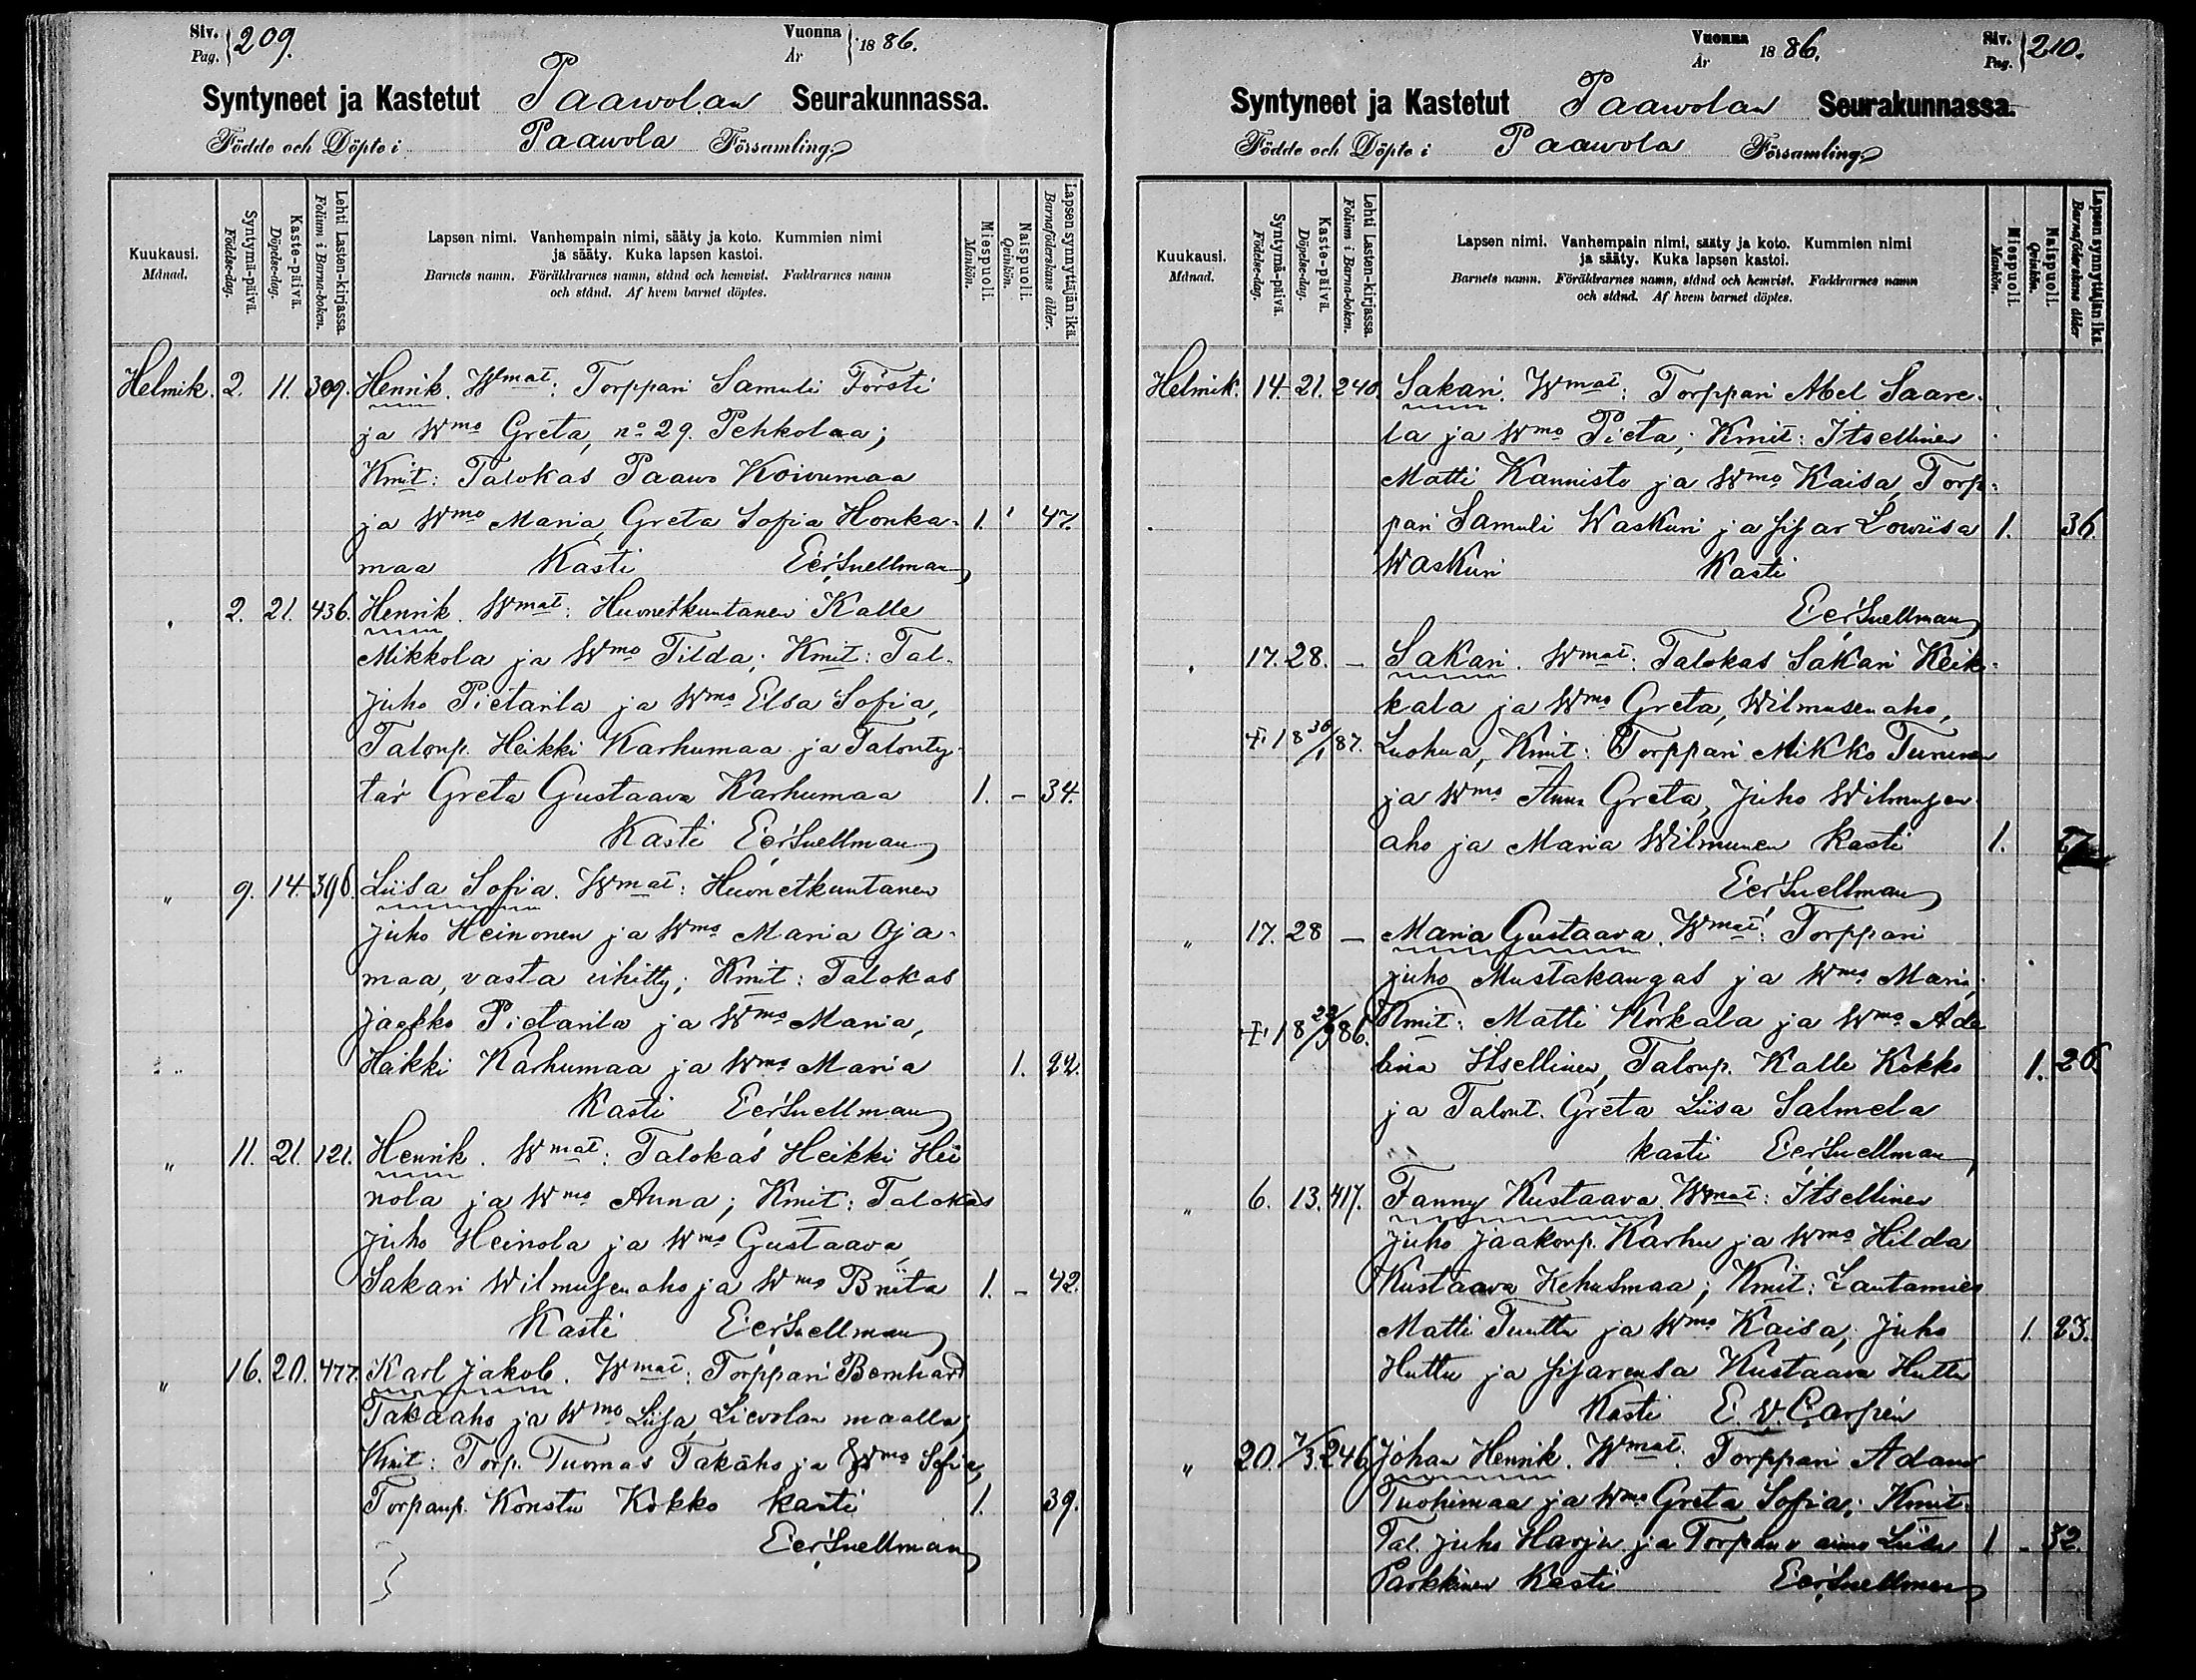 Siv. Pag. 209.
Vuonna År 1886.
Syntyneet ja Kastetut Paawolan Seurakunnassa.
Födde och Döpte i Paawola Församling
Kuukausi. Månad.
Syntymä-päivä. Födelse-dag.
Kaste-päivä. Döpelse-dag.
Lehti Lasten-kirjassa. Folium i Barna-boken.
Lapsen nimi. Vanhempain nimi, sääty ja koto. Kummien nimi
ja sääty. Kuka lapsen kastoi.
Barnets namn. Föräldrarnes namn, stånd och hemvist. Faddrarnes namn
och stånd. Af hvem barnet döptes.
Miespuoli. Mankön.
Naispuoli. Qvinkön.
Lapsen synnyttäjän ikä. Barnaföderskans ålder.
Helmik. 2. 11. 309. Henrik. Wmat: Torppari Samuli Försti
ja Wmo Greta, no 29. Pehkolaa;
Kmit: Talokas Paawo Koivumaa
ja Wmo Maria, Greta Sofia Honka- 1. 47.
maa Kasti EerSnellman
" 2. 21. 436. Henrik. Wmat: Huonetkuntanen Kalle
Mikkola ja Wmo Tilda; Kmit: Tal.
Juho Pietarila ja Wmo Elsa Sofia,
Talonp. Heikki Karhumaa ja Talonty-
tär Greta Gustaava Karhumaa 1. - 34.
Kasti EerSnellman
" 9. 14. 396. Liisa Sofia. Wmat: Huonetkuntanen
Juho Heinonen ja Wmo Maria Oja-
maa, vasta vihitty; Kmit: Talokas
Jaakko Pietarila ja Wmo Maria,
Heikki Karhumaa ja Wmo Maria 1. 22.
Kasti EerSnellman
" 11. 21. 121. Henrik. Wmat: Talokas Heikki Hei
nola ja Wmo Anna; Kmit: Talokas
Juho Heinola ja Wmo Gustaava,
Sakari Wilmusenaho ja Wmo Briita 1. - 42.
Kasti EerSnellman
" 16. 20. 477. Karl Jakob. Wmat: Torppari Bernhard
Takaaho ja Wmo Liisa, Lievolan maalla;
Kmit: Torp. Tuomas Takaho ja Wmo Sofia,
Torpanp. Konstu Kokko kasti 1. 39.
EerSnellman
Vuonna År 1886.
Siv. Pag. 210.
Syntyneet ja Kastetut Paawolan Seurakunnassa.
Födde och Döpte i Paawola Församling
Kuukausi. Månad.
Syntymä-päivä. Födelse-dag.
Kaste-päivä. Döpelse-dag.
Lehti Lasten-kirjassa. Folium i Barna-boken.
Lapsen nimi. Vanhempain nimi, sääty ja koto. Kummien nimi
ja sääty. Kuka lapsen kastoi.
Barnets namn. Föräldrarnes namn, stånd och hemvist. Faddrarnes namn
och stånd. Af hvem barnet döptes.
Miespuoli. Mankön.
Naispuoli. Qvinkön.
Lapsen synnyttäjän ikä. Barnaföderskans ålder
Helmik. 14. 21. 240. Sakari. Wmat: Torppari Abel Saare-
la ja Wmo Pieta; Kmit: Itsellinen
Matti Kannisto ja Wmo Kaisa, Torp-
pari Samuli Waskuri ja sisar Lowiisa 1. 36
Waskuri Kasti
EerSnellman
" 17. 28. - Sakari. Wmat: Talokas Sakari Keik-
kala ja Wmo Greta, Wilmusenaho,
+ 18 30/1 87. Luohua, Kmit: Torppari Mikko Turunen
ja Wmo Anna Greta, Juho Wilmusen-
aho ja Maria Wilmunen Kasti 1.
EerSnellman
" 17. 28 - Maria Gustaava. Wmat: Torppari
Juho Mustakangas ja Wmo Maria,
+ 18 22/9 86. Kmit: Matti Korkala ja Wmo Ade
lina Itsellinen, Talonp. Kalle Kokko 1. 26.
ja Talont. Greta Liisa Salmela
kasti EerSnellman
" 6. 13. 417. Fanny Kustaava. Wmat: Itsellinen
Juho Jaakonp. Karhu ja Wmo Hilda
Kustaava Kehusmaa; Kmit: Lautamies
Matti Tuuttu ja Wmo Kaisa; Juho 1. 23.
Huttu ja sisarensa Kustaava Huttu
Kasti E. V. Carpén
" 20. 7/3. 246. Johan Henrik. Wmat: Torppari Adam
Tuohimaa ja Wmo Greta Sofia; Kmit:
Tal. Juho Harju ja Torpan v aimo Liisa 1 - 32.
Parkkinen Kasti EerSnellman